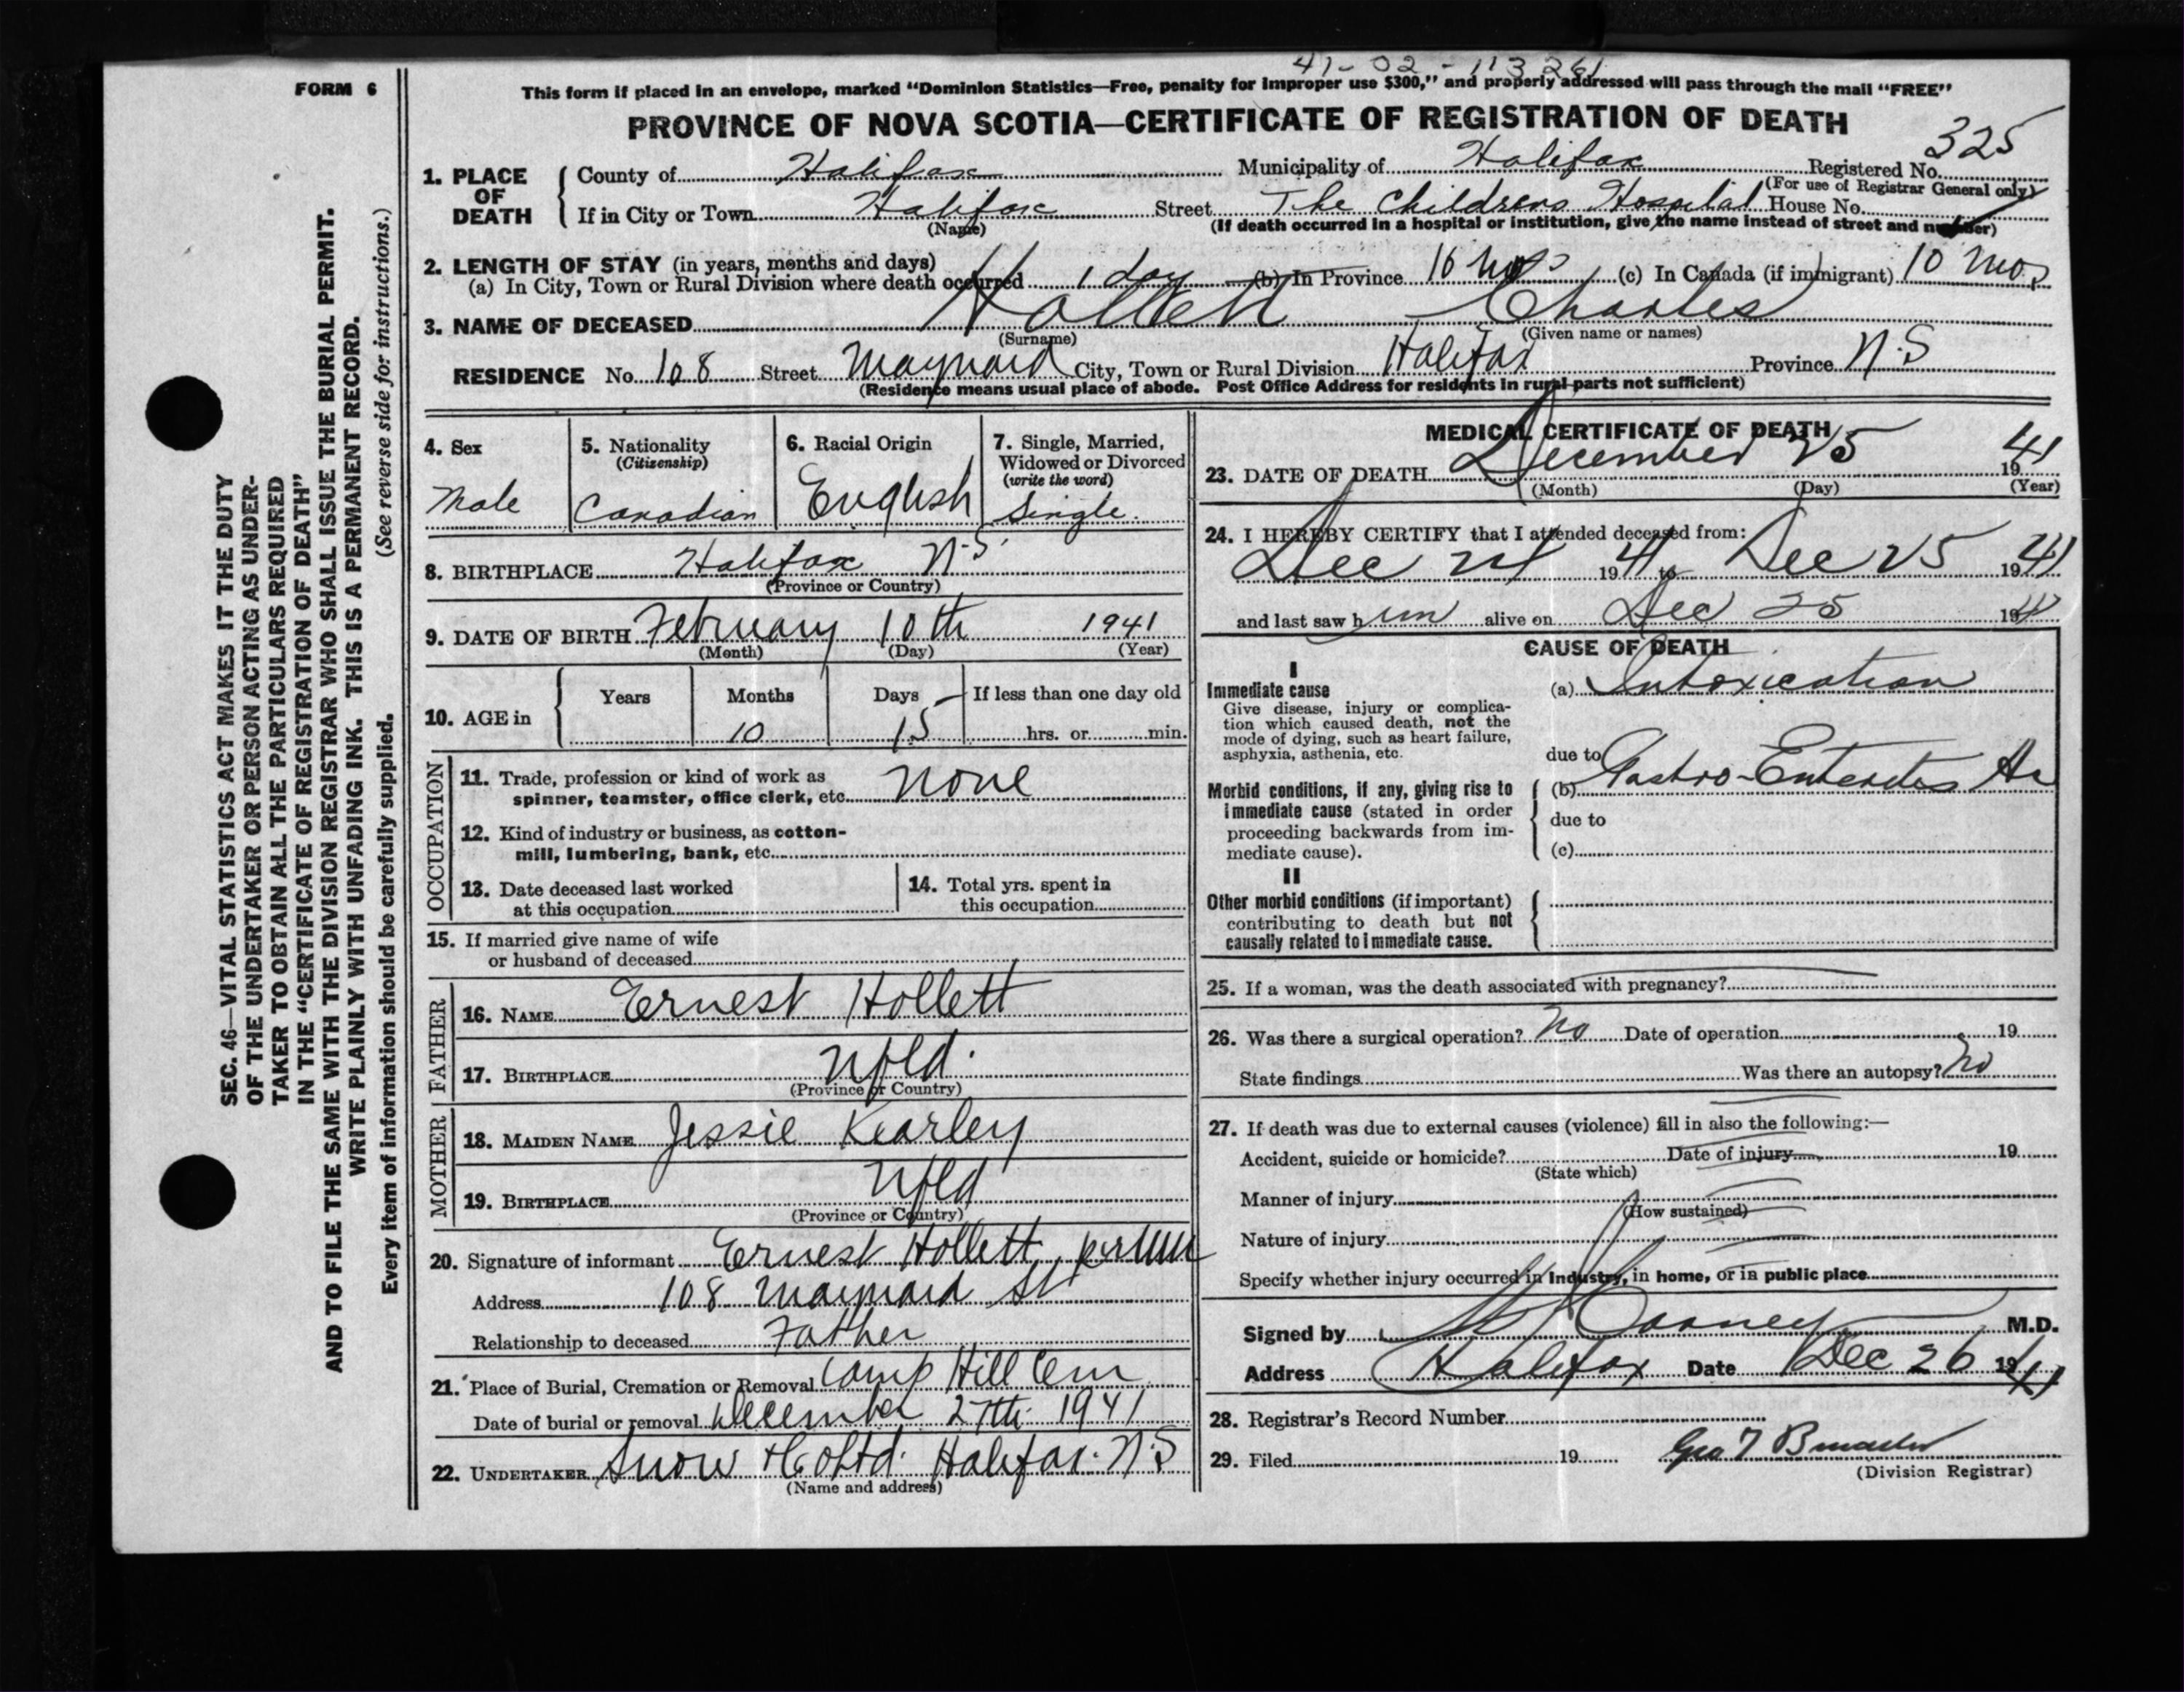 41-02-113261
FORM 6
This form if placed in an envelope, marked "Dominion Statistics—Free, penalty for improper use $300," and properly addressed will pass through the mail "FREE"
PROVINCE OF NOVA SCOTIA—CERTIFICATE OF REGISTRATION OF DEATH
325
1. PLACE OF DEATH County of Halifax Municipality of Halifax Registered No.
(For use of Registrar General only)
If in City or Town Halifax Street The Childrens Hospital House No.
(Name) (If death occurred in a hospital or institution, give the name instead of street and number)
2. LENGTH OF STAY (in years, months and days)
(a) In City, Town or Rural Division where death occurred 1 day (b) In Province 10 mos (c) In Canada (if immigrant) 10 mos
3. NAME OF DECEASED Hollett Charles
(Surname) (Given name or names)
RESIDENCE No. 108 Street Maynard City, Town or Rural Division Halifax Province N.S
(Residence means usual place of abode. Post Office Address for residents in rural parts not sufficient)
4. Sex
Male
5. Nationality
(Citizenship)
Canadian
6. Racial Origin
English
7. Single, Married,
Widowed or Divorced
(write the word)
Single
8. BIRTHPLACE Halifax N.S.
(Province or Country)
9. DATE OF BIRTH February 10th 1941
(Month) (Day) (Year)
10. AGE in Years Months Days If less than one day old
10 15 hrs. or min.
OCCUPATION
11. Trade, profession or kind of work as
spinner, teamster, office clerk, etc. none
12. Kind of industry or business, as cotton-
mill, lumbering, bank, etc.
13. Date deceased last worked
at this occupation
14. Total yrs. spent in
this occupation
15. If married give name of wife
or husband of deceased
FATHER
16. NAME Ernest Hollett
17. BIRTHPLACE Nfld.
(Province or Country)
MOTHER
18. MAIDEN NAME Jessie Kearley
19. BIRTHPLACE Nfld
(Province or Country)
20. Signature of informant Ernest Hollett per
Address 108 Maynard St
Relationship to deceased Father
21. Place of Burial, Cremation or Removal Camp Hill Cem
Date of burial or removal December 27th 1941
22. UNDERTAKER Snow & Co Ltd. Halifax. N.S
(Name and address)
MEDICAL CERTIFICATE OF DEATH
23. DATE OF DEATH December 25 1941
(Month) (Day) (Year)
24. I HEREBY CERTIFY that I attended deceased from:
Dec 24 1941 to Dec 25 1941
and last saw him alive on Dec 25 1941
CAUSE OF DEATH
I
Immediate cause
Give disease, injury or complica-
tion which caused death, not the
mode of dying, such as heart failure,
asphyxia, asthenia, etc.
(a) Intoxication
due to
Morbid conditions, if any, giving rise to
immediate cause (stated in order
proceeding backwards from im-
mediate cause).
(b) Gastro-Enteritis Ac
due to
(c)
II
Other morbid conditions (if important)
contributing to death but not
causally related to immediate cause.
25. If a woman, was the death associated with pregnancy?
26. Was there a surgical operation? No Date of operation 19
State findings Was there an autopsy? No
27. If death was due to external causes (violence) fill in also the following:—
Accident, suicide or homicide? Date of injury 19
(State which)
Manner of injury
(How sustained)
Nature of injury
Specify whether injury occurred in Industry, in home, or in public place
Signed by M.D.
Address Halifax Date Dec 26 1941
28. Registrar's Record Number
29. Filed 19
(Division Registrar)
SEC. 46—VITAL STATISTICS ACT MAKES IT THE DUTY
OF THE UNDERTAKER OR PERSON ACTING AS UNDER-
TAKER TO OBTAIN ALL THE PARTICULARS REQUIRED
IN THE "CERTIFICATE OF REGISTRATION OF DEATH"
AND TO FILE THE SAME WITH THE DIVISION REGISTRAR WHO SHALL ISSUE THE BURIAL PERMIT.
WRITE PLAINLY WITH UNFADING INK. THIS IS A PERMANENT RECORD.
Every item of information should be carefully supplied. (See reverse side for instructions.)